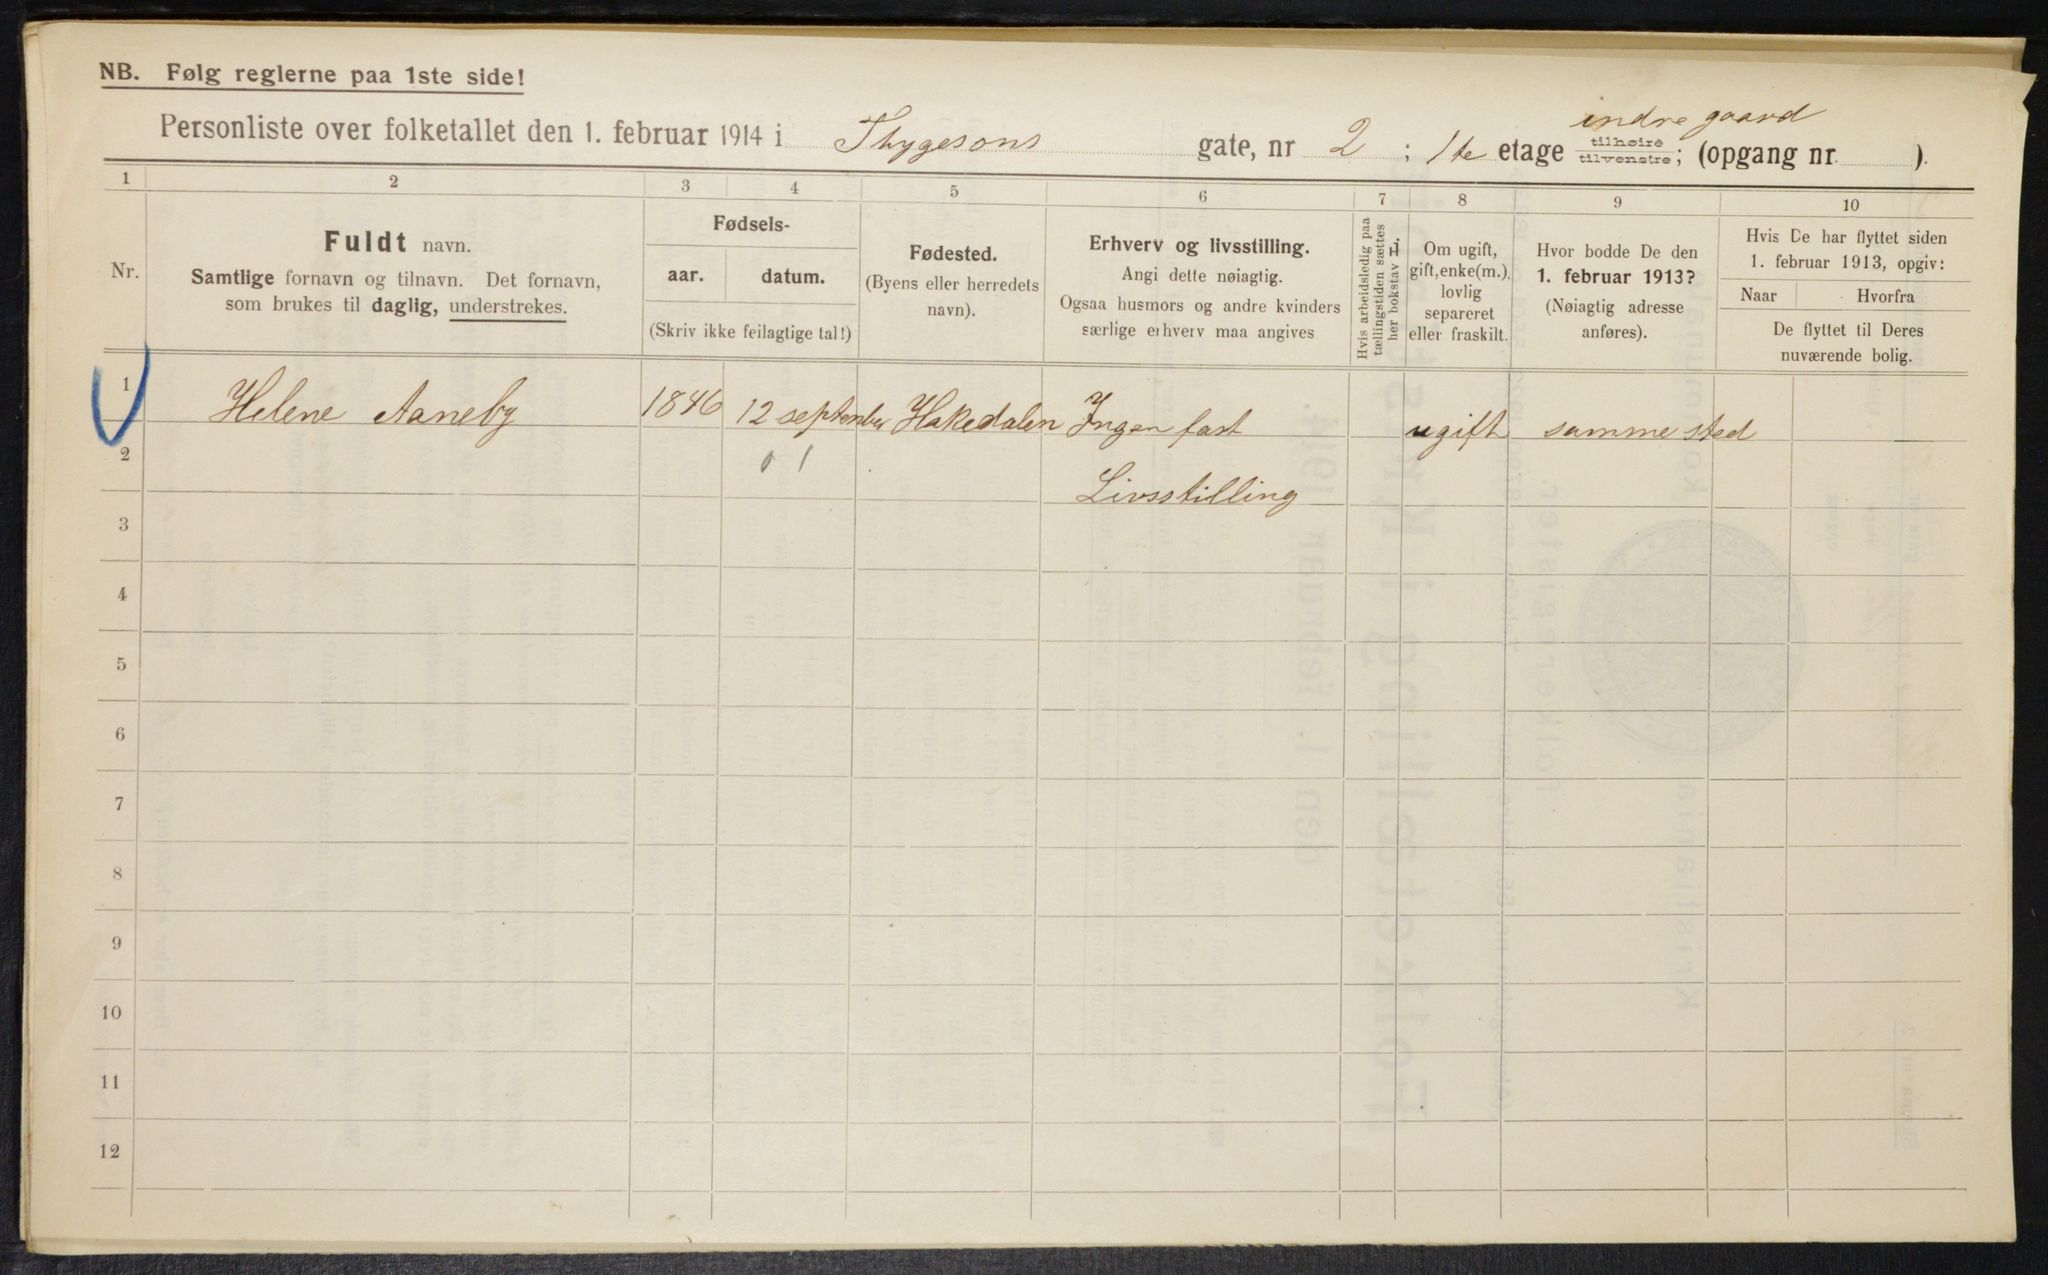 NB. Følg reglerne paa 1ste side!
Personliste over folketallet den 1. februar 1914 i Thygesons gate, nr 2 ; 1te etage tilhøire tilvenstre; indre gaard (opgang nr. ).
1 2 3 4 5 6 7 8 9 10
Nr.
Fuldt navn.
Samtlige fornavn og tilnavn. Det fornavn,
som brukes til daglig, understrekes.
Fødsels-
aar. datum.
(Skriv ikke feilagtige tal!)
Fødested.
(Byens eller herredets
navn).
Erhverv og livsstilling.
Angi dette nøiagtig.
Ogsaa husmors og andre kvinders
særlige erhverv maa angives
Hvis arbeidsledig paa
tællingstiden sættes
her bokstav L.
Om ugift,
gift, enke(m.),
lovlig
separeret
eller fraskilt.
Hvor bodde De den
1. februar 1913?
(Nøiagtig adresse
anføres).
Hvis De har flyttet siden
1. februar 1913, opgiv:
Naar Hvorfra
De flyttet til Deres
nuværende bolig.
1 Helene Aaneby 1846 12 september Hakedalen Ingen fast ugift samme sted
2 01
Livsstilling
3
4
5
6
7
8
9
10
11
12